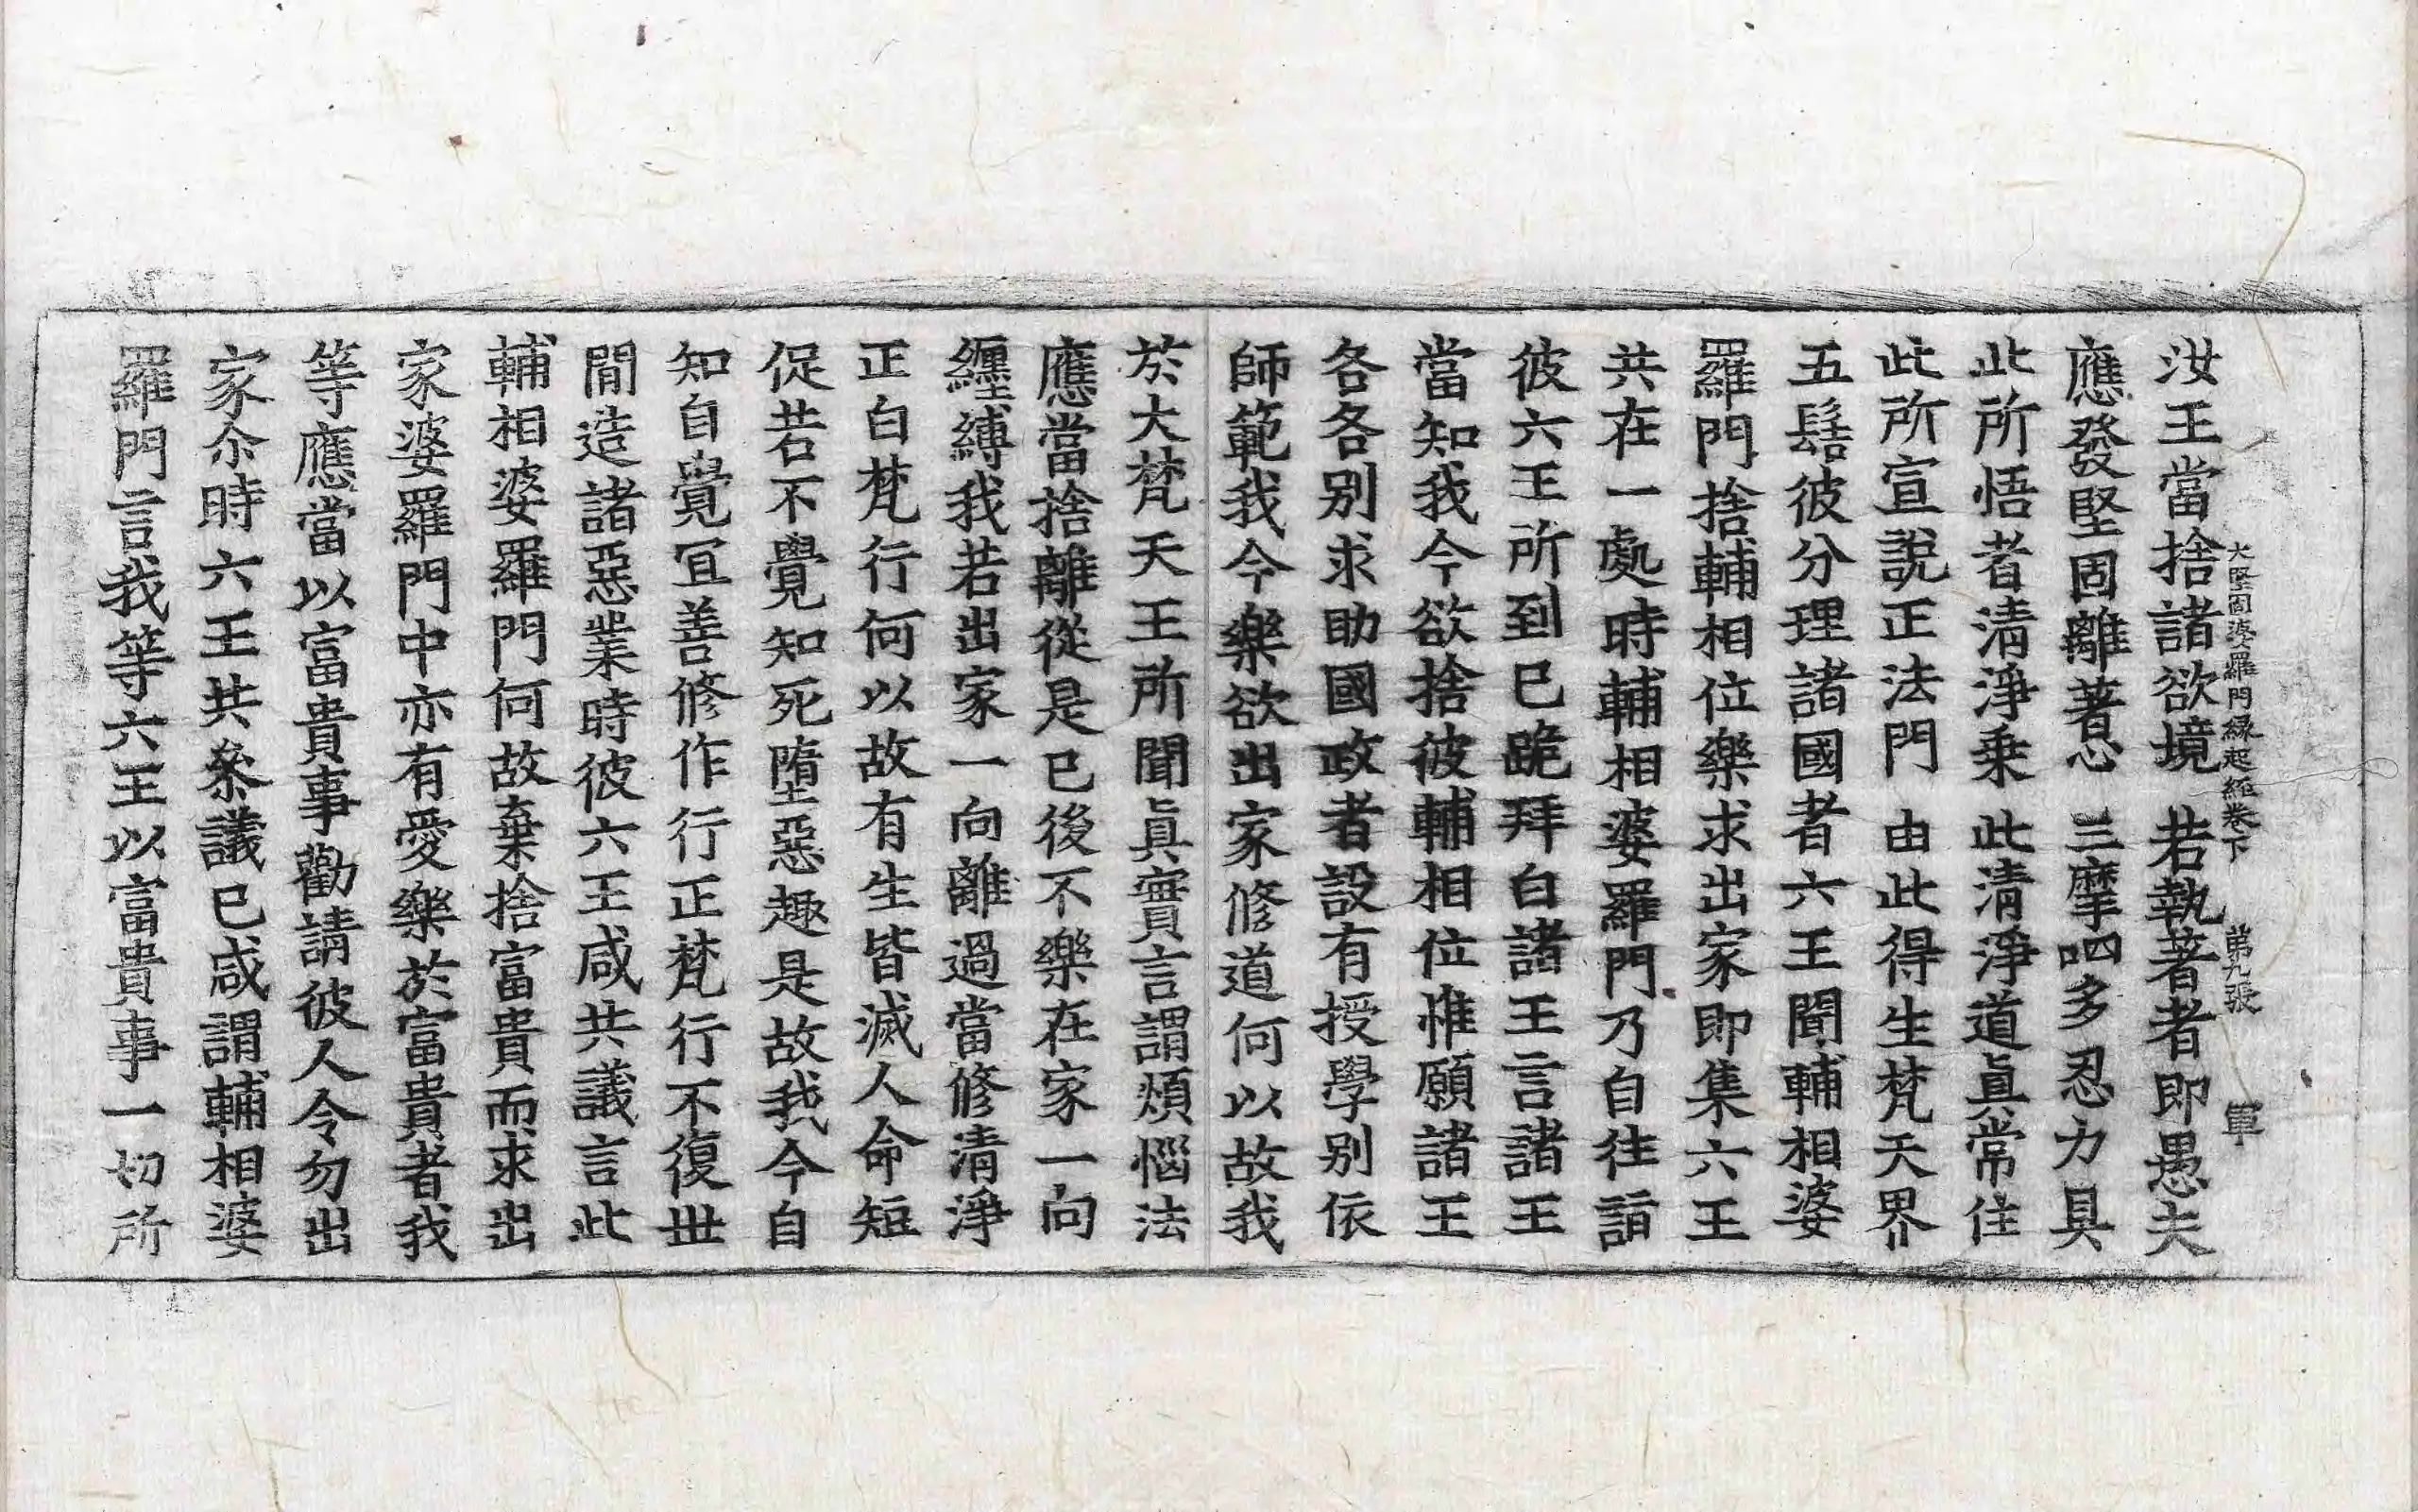 大堅固婆羅門緣起經卷下 第九張 軍
汝王當捨諸欲境 若執著者即愚夫
應發堅固離著心 三摩呬多忍力具
此所悟者清淨乘 此清淨道眞常住
此所宣說正法門 由此得生梵天界
五髻彼分理諸國者六王聞輔相婆
羅門捨輔相位樂求出家即集六王
共在一處時輔相婆羅門乃自往詣
彼六王所到已跪拜白諸王言諸王
當知我今欲捨彼輔相位惟願諸王
各各別求助國政者設有授學別依
師範我今樂欲出家修道何以故我
於大梵天王所聞眞實言謂煩惱法
應當捨離從是已後不樂在家一向
纏縛我若出家一向離過當修清淨
正白梵行何以故有生皆滅人命短
促若不覺知死墮惡趣是故我今自
知自覺宜善修作行正梵行不復世
閒造諸惡業時彼六王咸共議言此
輔相婆羅門何故棄捨富貴而求出
家婆羅門中亦有愛樂於富貴者我
等應當以富貴事勸請彼人令勿出
家尒時六王共叅議已咸謂輔相婆
羅門言我等六王以富貴事一切所